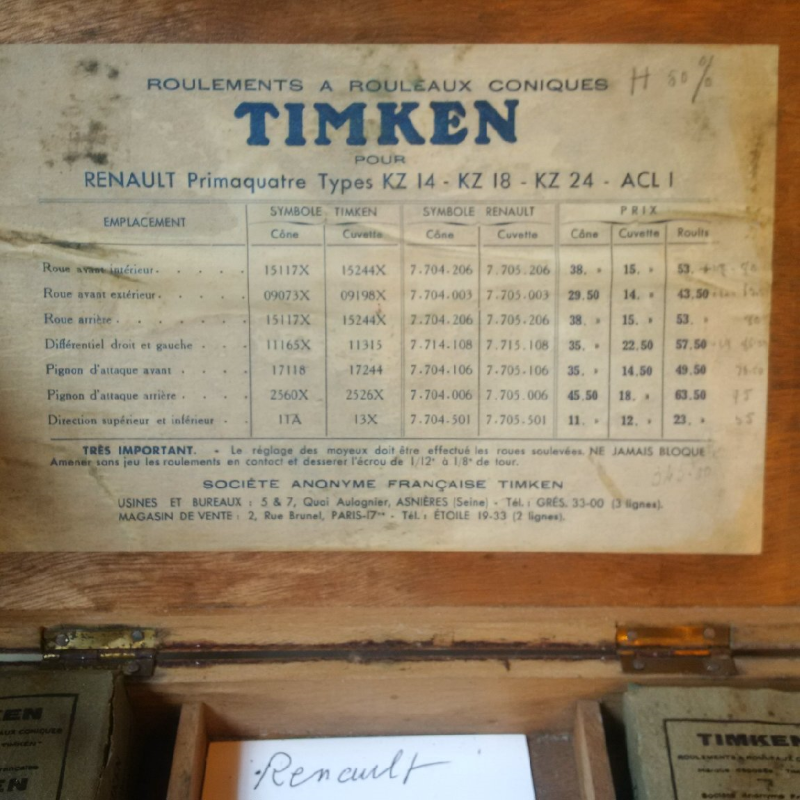 ROULEMENTS A ROULEAUX CONIQUES H 80 %
TIMKEN
POUR
RENAULT Primaquatre Types KZ 14 - KZ 18 - KZ 24 - ACL 1
EMPLACEMENT SYMBOLE TIMKEN SYMBOLE RENAULT PRIX
Cône Cuvette Cône Cuvette Cône Cuvette Roults
Roue avant intérieur. . . . . 15117X 15244X 7.704.206 7.705.206 38. » 15. » 53.
Roue avant extérieur. . . . . 09073X 09198X 7.704.003 7.705.003 29.50 14. » 43.50
Roue arrière . . . . . . . 15117X 15244X 7.704.206 7.705.206 38. » 15. » 53. »
Différentiel droit et gauche . . . 11165X 11315 7.714.108 7.715.108 35. » 22.50 57.50
Pignon d'attaque avant . . . . 17118 17244 7.704.106 7.705.106 35. » 14.50 49.50
Pignon d'attaque arrière . . . . 2560X 2526X 7.704.006 7.705.006 45.50 18. » 63.50
Direction supérieur et inférieur . . 1TA 13X 7.704.501 7.705.501 11. » 12. » 23. »
TRÈS IMPORTANT. - Le réglage des moyeux doit être effectué les roues soulevées. NE JAMAIS BLOQUE
Amener sans jeu les roulements en contact et desserer l'écrou de 1/12e à 1/8e de tour.
SOCIÉTÉ ANONYME FRANÇAISE TIMKEN
USINES ET BUREAUX : 5 & 7, Quai Aulagnier, ASNIÈRES (Seine) - Tél. : GRÉS. 33-00 (3 lignes).
MAGASIN DE VENTE : 2, Rue Brunel, PARIS-17me - Tél. : ÉTOILE 19-33 (2 lignes).
KEN
AUX CONIQUES
TIMKEN
Renault
TIMKEN
ROULEMENTS A ROULEAUX
Société Anonyme